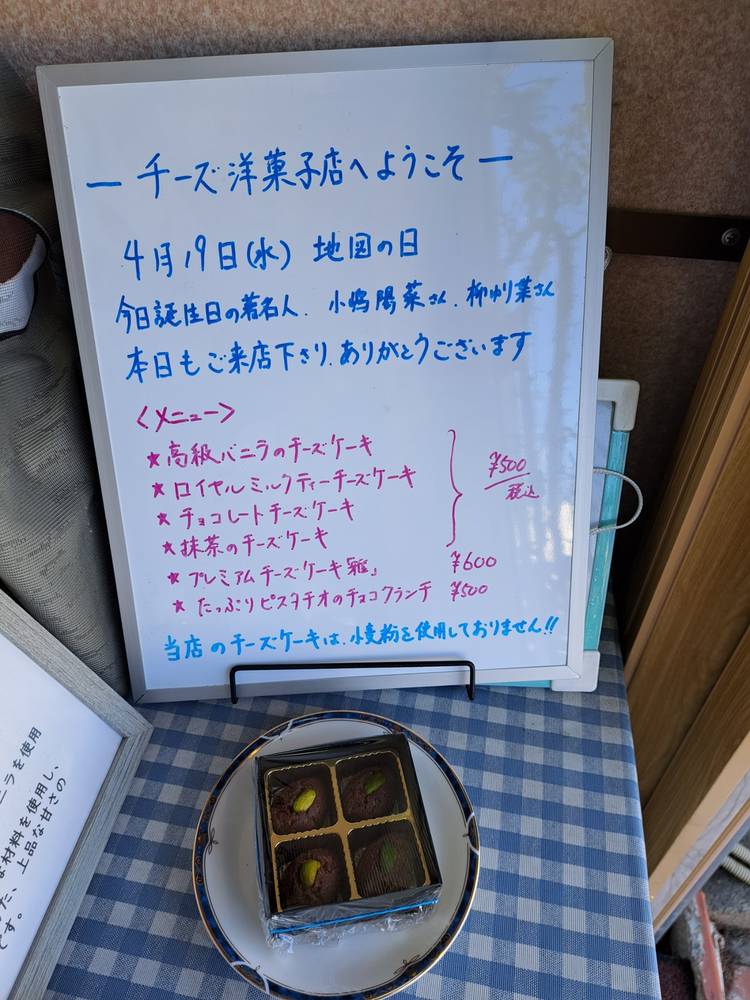 ー チーズ洋菓子店へようこそ ー
4月19日(水) 地図の日
今日誕生日の著名人、小嶋陽菜さん、柳ゆり菜さん
本日もご来店下さり、ありがとうございます
〈メニュー〉
★高級バニラのチーズケーキ
★ロイヤルミルクティーチーズケーキ
★チョコレートチーズケーキ
★抹茶のチーズケーキ
¥500
税込
★プレミアムチーズケーキ「雅」 ¥600
★たっぷりピスタチオのチョコクランチ ¥500
当店のチーズケーキは、小麦粉を使用しておりません!!
ニラを使用
な材料を使用し、
った、上品な甘さの
です。